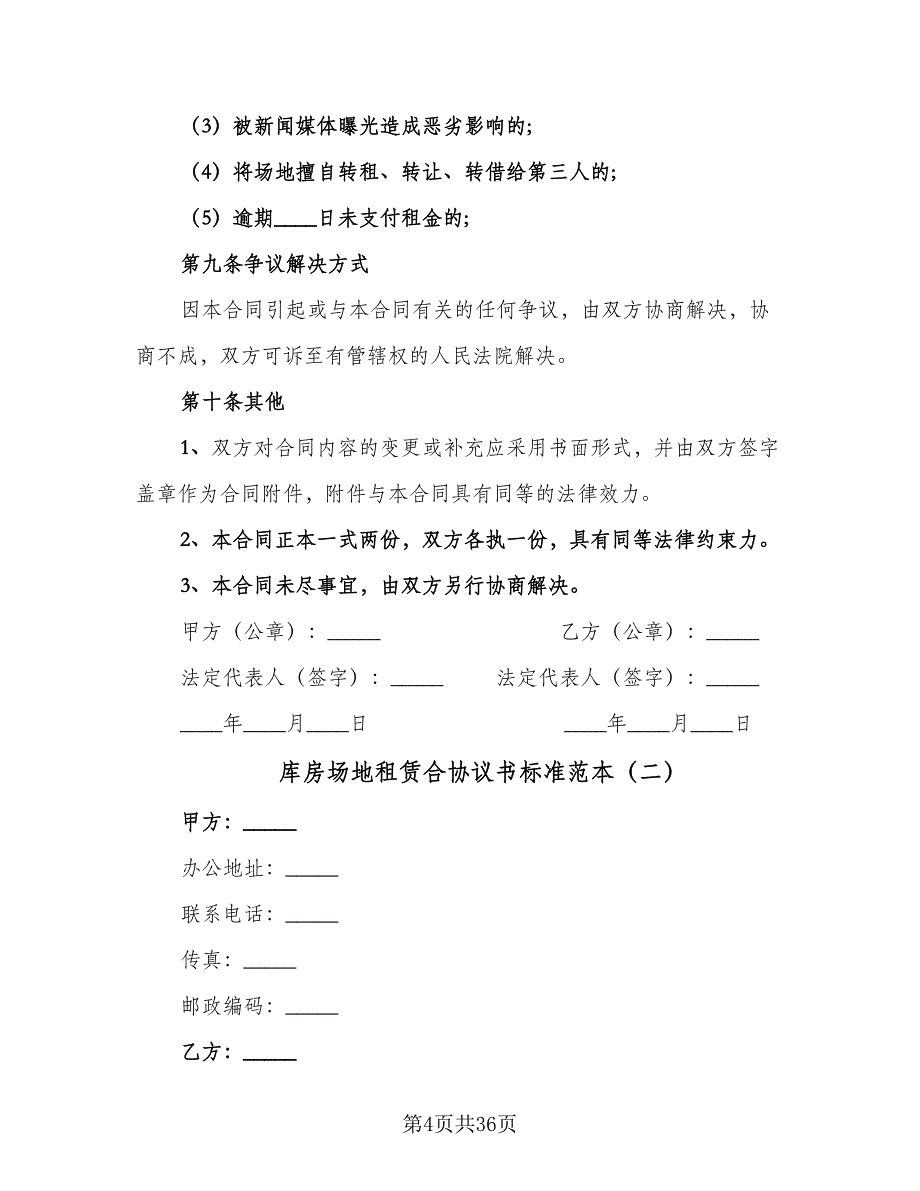 （3）被新闻媒体曝光造成恶劣影响的;
（4）将场地擅自转租、转让、转借给第三人的;
（5）逾期____日未支付租金的;
第九条争议解决方式
因本合同引起或与本合同有关的任何争议，由双方协商解决，协
商不成，双方可诉至有管辖权的人民法院解决。
第十条其他
1、双方对合同内容的变更或补充应采用书面形式，并由双方签字
盖章作为合同附件，附件与本合同具有同等的法律效力。
2、本合同正本一式两份，双方各执一份，具有同等法律约束力。
3、本合同未尽事宜，由双方另行协商解决。
甲方（公章）：_____ 乙方（公章）：_____
法定代表人（签字）：_____ 法定代表人（签字）：_____
____年____月____日 ____年____月____日
库房场地租赁合协议书标准范本（二）
甲方：_____
办公地址：_____
联系电话：_____
传真：_____
邮政编码：_____
乙方：_____
第4页共36页